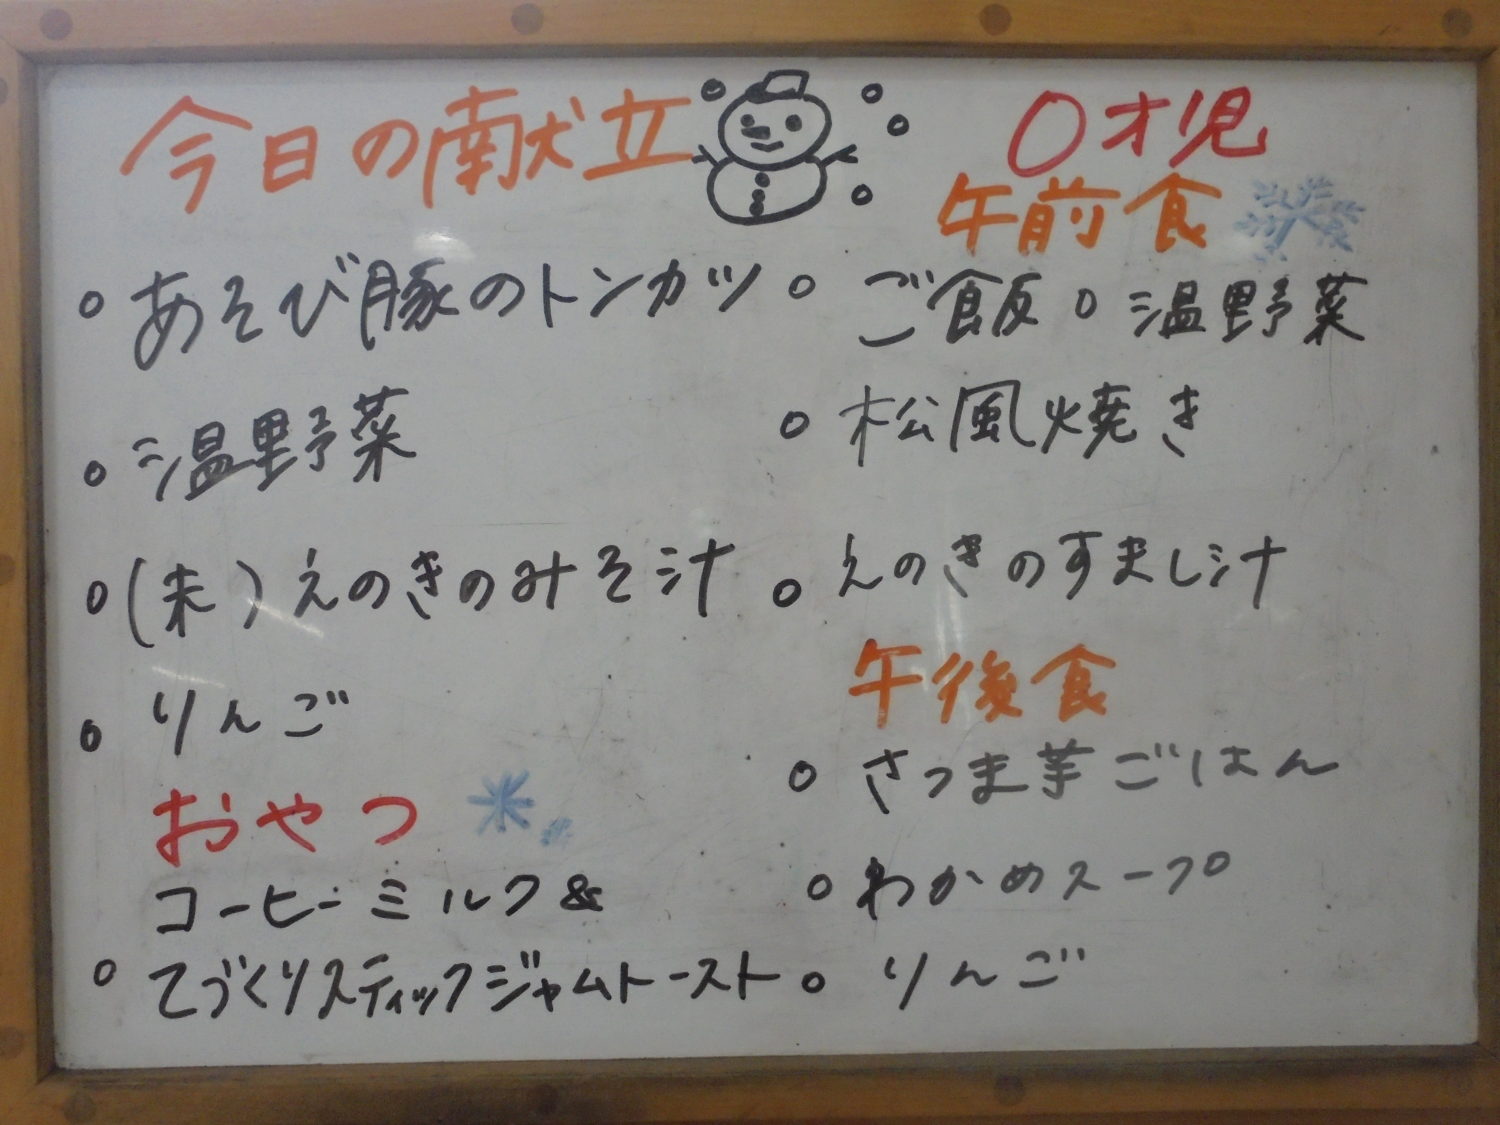 今日の献立
○ あそび豚のトンカツ
○ 温野菜
○ (未) えのきのみそ汁
○ りんご
おやつ
コーヒーミルク&
○ てづくりスティックジャムトースト
0才児
午前食
○ ご飯 ○ 温野菜
○ 松風焼き
○ えのきのすまし汁
午後食
○ さつま芋ごはん
○ わかめスープ
○ りんご